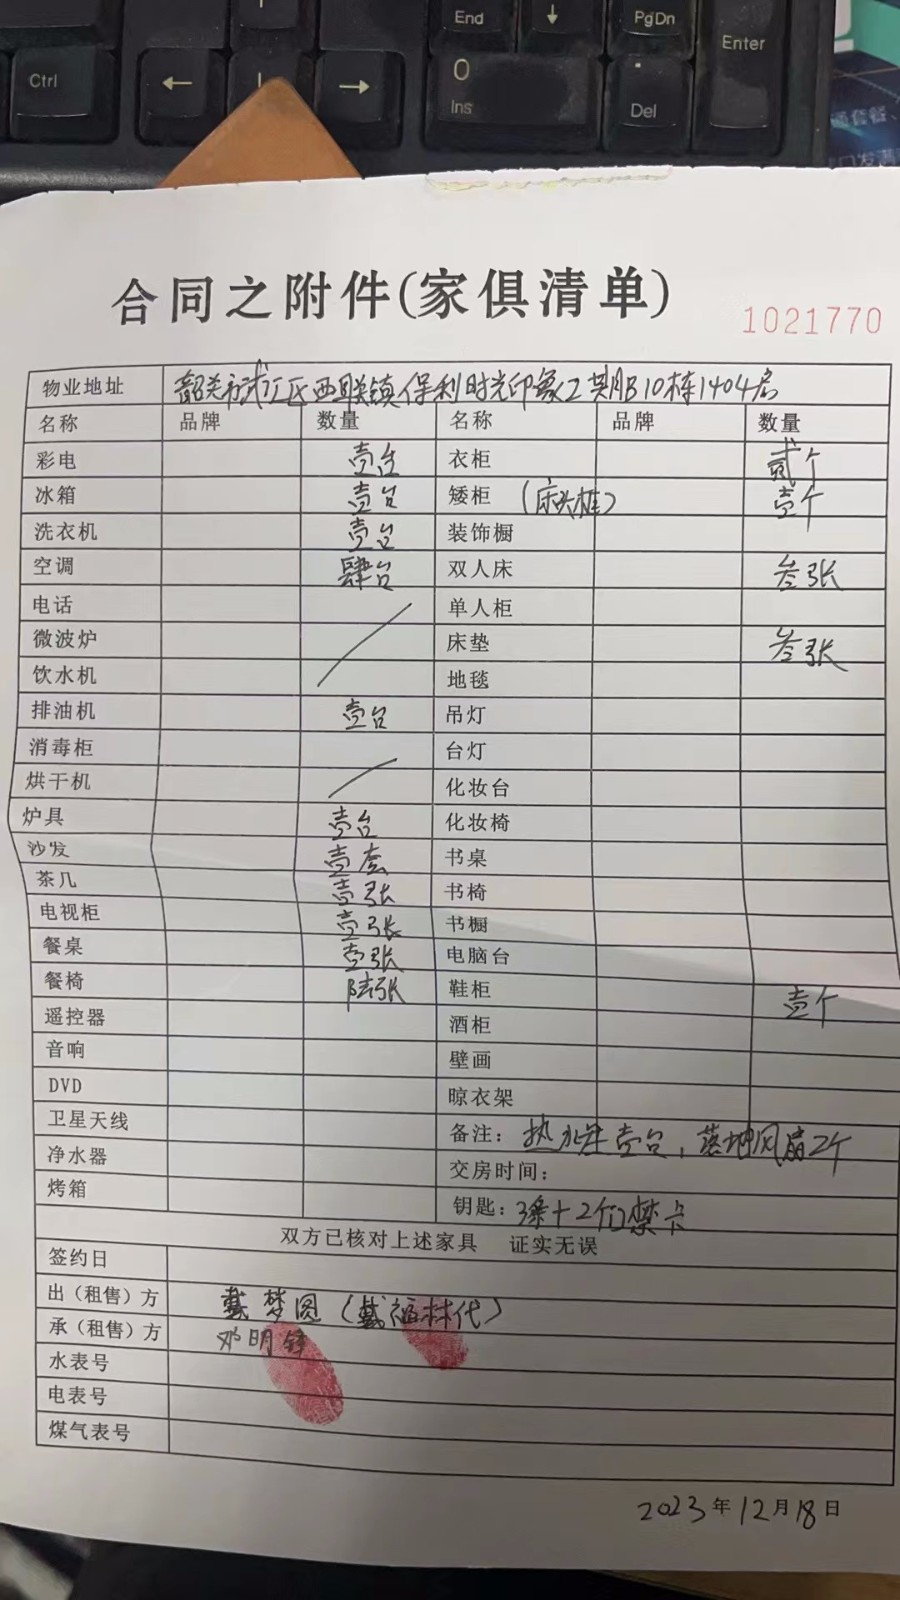 End
↓
PgDn
Enter
Ctrl
←
↓
→
0
Ins
.
Del
合同之附件(家俱清单)
1021770
物业地址 韶关市武江区西联镇保利时光印象工期B10栋1404房
名称 品牌 数量 名称 品牌 数量
彩电 壹台 衣柜 贰个
冰箱 壹台 矮柜 (床头柜) 壹个
洗衣机 壹台 装饰橱
空调 肆台 双人床 叁张
电话 单人柜
微波炉 床垫 叁张
饮水机 地毯
排油机 壹台 吊灯
消毒柜 台灯
烘干机 化妆台
炉具 壹台 化妆椅
沙发 壹套 书桌
茶几 壹张 书椅
电视柜 壹张 书橱
餐桌 壹张 电脑台
餐椅 陆张 鞋柜 壹个
遥控器 酒柜
音响 壁画
DVD 晾衣架
卫星天线 备注: 热水器壹台,落地风扇2个
净水器 交房时间:
烤箱 钥匙: 3条+2个门禁卡
双方已核对上述家具 证实无误
签约日
出（租售）方 戴梦圆(戴福林代)
承（租售）方 邓明锋
水表号
电表号
煤气表号
2023年12月18日